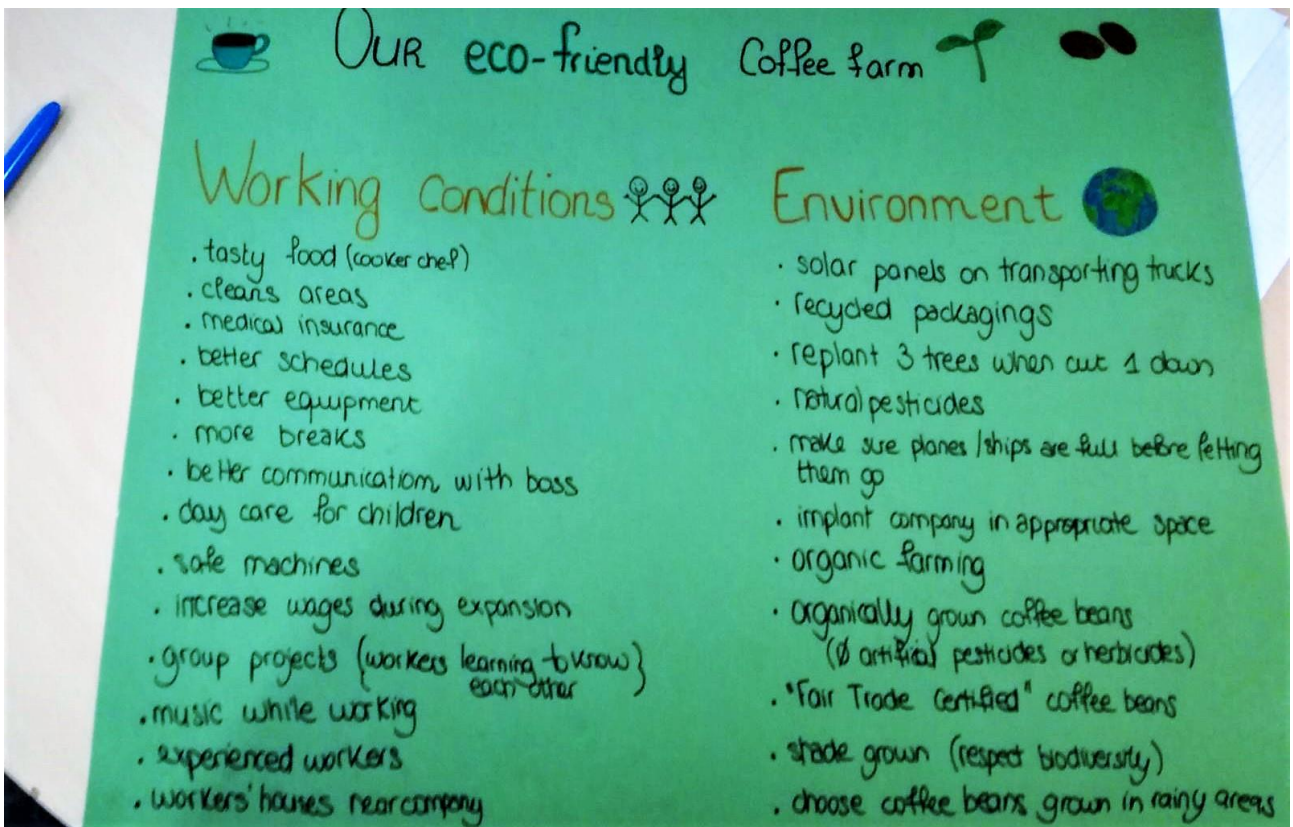 OUR eco-friendly Coffee farm
Working Conditions
. tasty food (cooker chef)
. cleans areas
. medical insurance
. better schedules
. better equipment
. more breaks
. better communication with boss
. day care for children
. safe machines
. increase wages during expansion
. group projects (workers learning to know}
each other
. music while working
. experienced workers
. workers' houses near company
Environment
. solar panels on transporting trucks
. recycled packagings
. replant 3 trees when cut 1 down
. natural pesticides
. make sure planes / ships are full before letting
them go
. implant company in appropriate space
. organic farming
. organically grown coffee beans
(Ø artificial pesticides or herbicides)
. "Fair Trade Certified" coffee beans
. shade grown (respect biodiversity)
. choose coffee beans grown in rainy areas